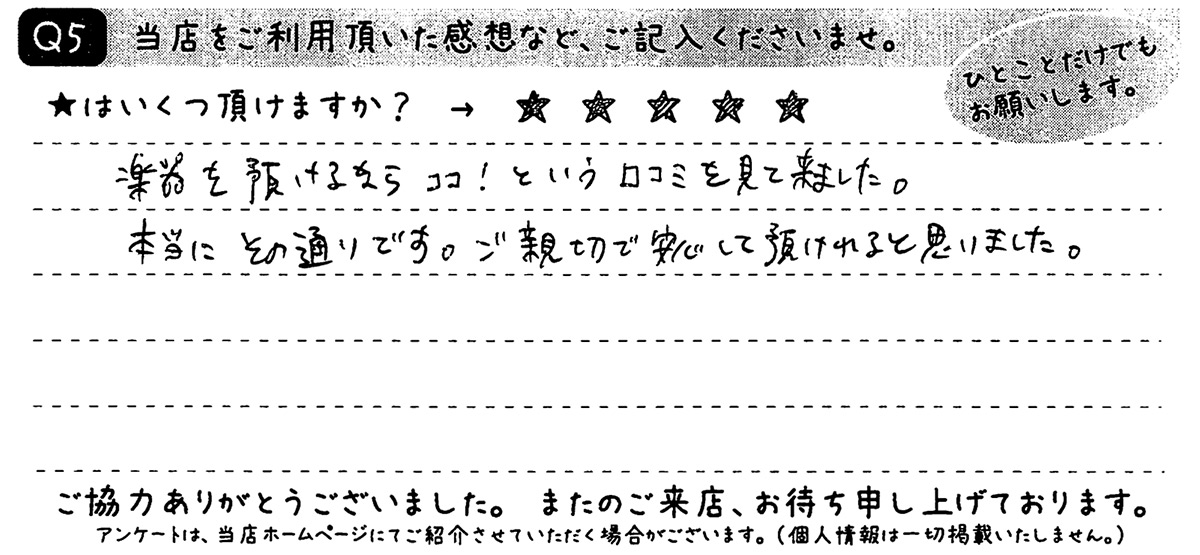 Q5 当店をご利用頂いた感想など、ご記入くださいませ。
ひとことだけでも
お願いします。
★はいくつ頂けますか？ → ★ ★ ★ ★ ★
楽器を預けるなら ココ！という口コミを見て来ました。
本当に その通りです。ご親切で安心して預けれると思いました。
ご協力ありがとうございました。 またのご来店、お待ち申し上げております。
アンケートは、当店ホームページにてご紹介させていただく場合がございます。（個人情報は一切掲載いたしません。）